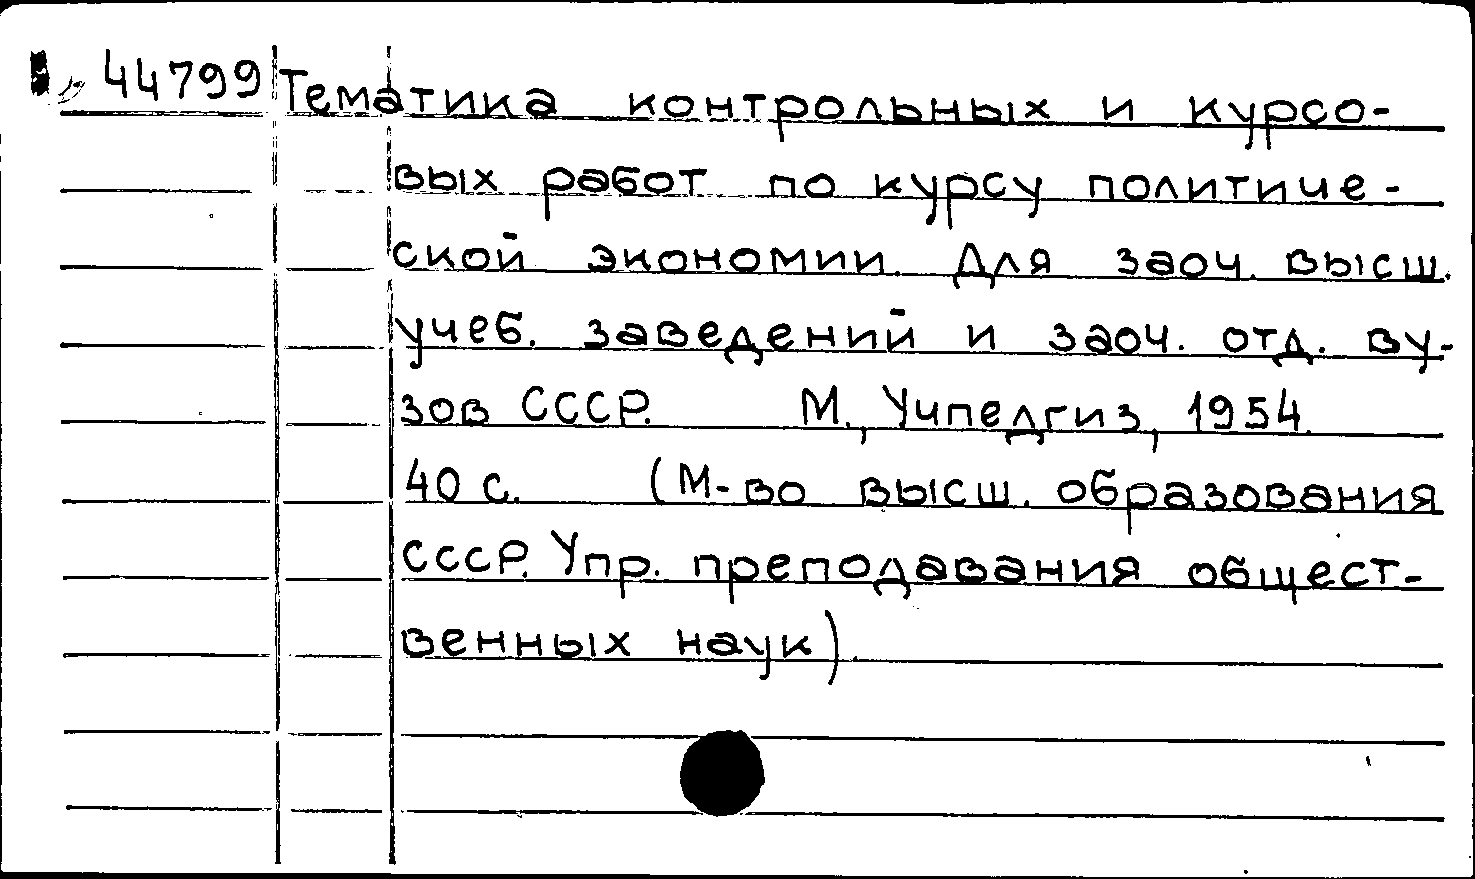 44799 Тематика контрольных и курсо-
вых работ по курсу политиче-
ской экономии. Для заоч. высш.
учеб. заведений и заоч. отд. ву-
зов СССР. М., Учпедгиз, 1954.
40 с. (М-во высш. образования
СССР. Упр. преподавания общест-
венных наук).